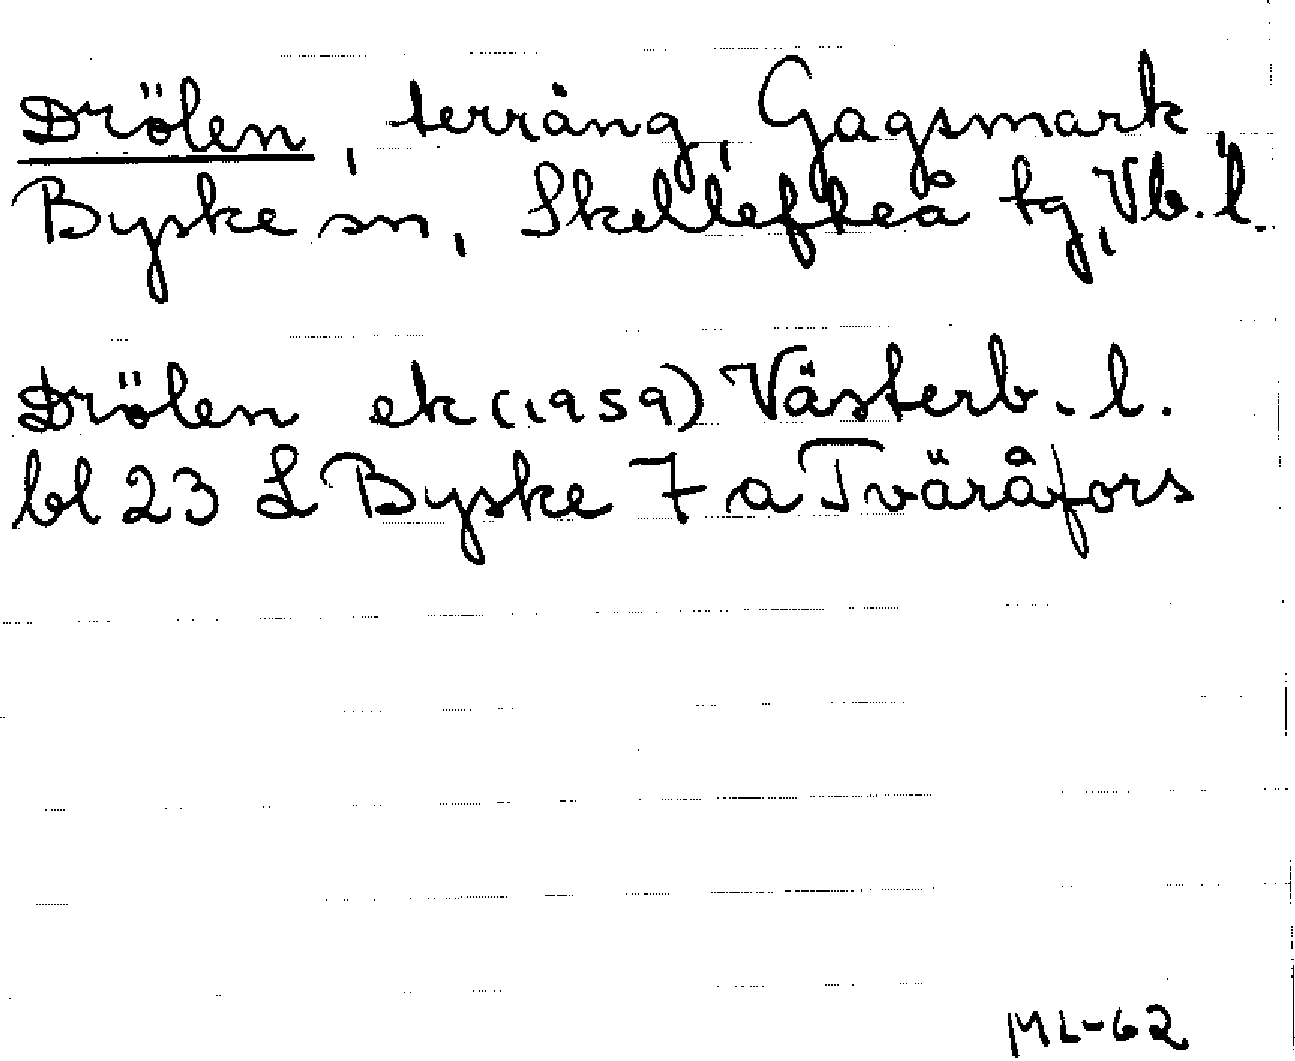 Drölen, terräng, Gagsmark,
Byske sn, Skellefteå tg, Vb. l.
Drölen ek (1959) Västerb. l.
bl 23 L Byske 7 a Tväråfors
ML-62